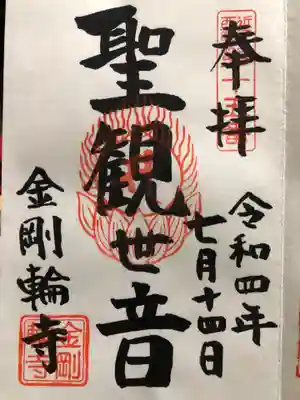 奉拝
令和四年
七月十四日
聖観世音
金剛輪寺
金剛
輪寺